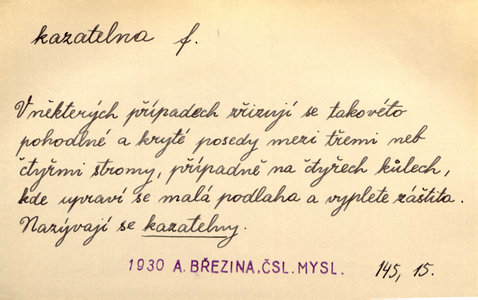 kazatelna f.
V některých případech zřizují se takovéto
pohodlné a kryté posedy mezi třemi neb
čtyřmi stromy, případně na čtyřech kůlech,
kde upraví se malá podlaha a vyplete záštita.
Nazývají se kazatelny.
1930 A. BŘEZINA. ČSL. MYSL. 145, 15.